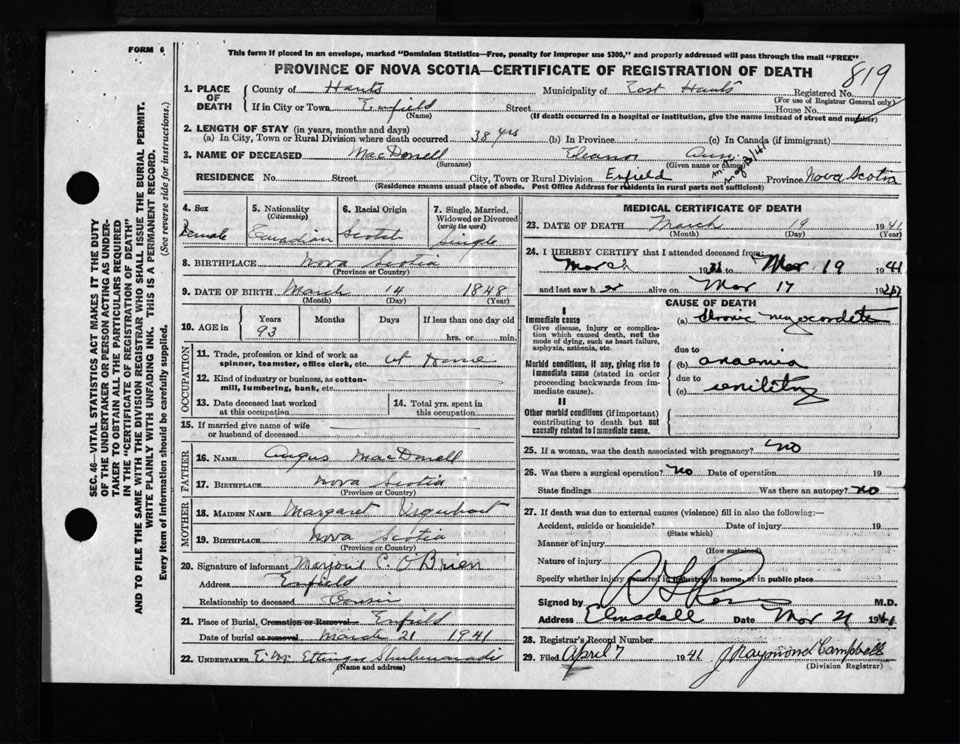 FORM 6
This form if placed in an envelope, marked "Dominion Statistics—Free, penalty for improper use $300," and properly addressed will pass through the mail "FREE"
PROVINCE OF NOVA SCOTIA—CERTIFICATE OF REGISTRATION OF DEATH
819
1. PLACE OF DEATH
County of Hants Municipality of East Hants Registered No.
(For use of Registrar General only)
If in City or Town Enfield Street House No.
(Name) (If death occurred in a hospital or institution, give the name instead of street and number)
2. LENGTH OF STAY (in years, months and days)
(a) In City, Town or Rural Division where death occurred 38 yrs (b) In Province (c) In Canada (if immigrant)
3. NAME OF DECEASED MacDonell Eleanor Ann
(Surname) (Given name or names)
RESIDENCE No. Street City, Town or Rural Division Enfield Province Nova Scotia
(Residence means usual place of abode. Post Office Address for residents in rural parts not sufficient)
4. Sex
Female
5. Nationality
(Citizenship)
Canadian
6. Racial Origin
Scotch
7. Single, Married, Widowed or Divorced
(write the word)
Single
8. BIRTHPLACE Nova Scotia
(Province or Country)
9. DATE OF BIRTH March 14 1848
(Month) (Day) (Year)
10. AGE in
Years Months Days If less than one day old
93 hrs. or min.
OCCUPATION
11. Trade, profession or kind of work as spinner, teamster, office clerk, etc. at Home
12. Kind of industry or business, as cotton-mill, lumbering, bank, etc.
13. Date deceased last worked at this occupation
14. Total yrs. spent in this occupation
15. If married give name of wife or husband of deceased
FATHER
16. NAME Angus MacDonell
17. BIRTHPLACE Nova Scotia
(Province or Country)
MOTHER
18. MAIDEN NAME Margaret Urquhart
19. BIRTHPLACE Nova Scotia
(Province or Country)
20. Signature of informant Marjorie C. O'Brien
Address Enfield
Relationship to deceased Cousin
21. Place of Burial, Cremation or Removal Enfield
Date of burial or removal March 21 1941
22. UNDERTAKER Shubenacadie
(Name and address)
MEDICAL CERTIFICATE OF DEATH
23. DATE OF DEATH March 19 1941
(Month) (Day) (Year)
24. I HEREBY CERTIFY that I attended deceased from:
March to Mar 19 1941
and last saw her alive on Mar 17 19
CAUSE OF DEATH
I
Immediate cause
Give disease, injury or complication which caused death, not the mode of dying, such as heart failure, asphyxia, asthenia, etc.
(a) Chronic myocarditis
due to
Morbid conditions, if any, giving rise to immediate cause (stated in order proceeding backwards from immediate cause).
(b) anaemia
due to
(c) senility
II
Other morbid conditions (if important) contributing to death but not causally related to immediate cause.
25. If a woman, was the death associated with pregnancy? No
26. Was there a surgical operation? No Date of operation 19
State findings Was there an autopsy? No
27. If death was due to external causes (violence) fill in also the following:—
Accident, suicide or homicide? Date of injury 19
(State which)
Manner of injury
(How sustained)
Nature of injury
Specify whether injury occurred in industry, in home, or in public place
Signed by M.D.
Address Elmsdale Date Mar 21 194
28. Registrar's Record Number
29. Filed April 7 1941 J Raymond Campbell
(Division Registrar)
SEC. 46—VITAL STATISTICS ACT MAKES IT THE DUTY
OF THE UNDERTAKER OR PERSON ACTING AS UNDER-
TAKER TO OBTAIN ALL THE PARTICULARS REQUIRED
IN THE "CERTIFICATE OF REGISTRATION OF DEATH"
AND TO FILE THE SAME WITH THE DIVISION REGISTRAR WHO SHALL ISSUE THE BURIAL PERMIT.
WRITE PLAINLY WITH UNFADING INK. THIS IS A PERMANENT RECORD.
Every item of information should be carefully supplied. (See reverse side for instructions.)